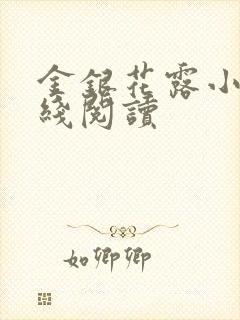 金銀花露小
綫閱讀
如卿卿